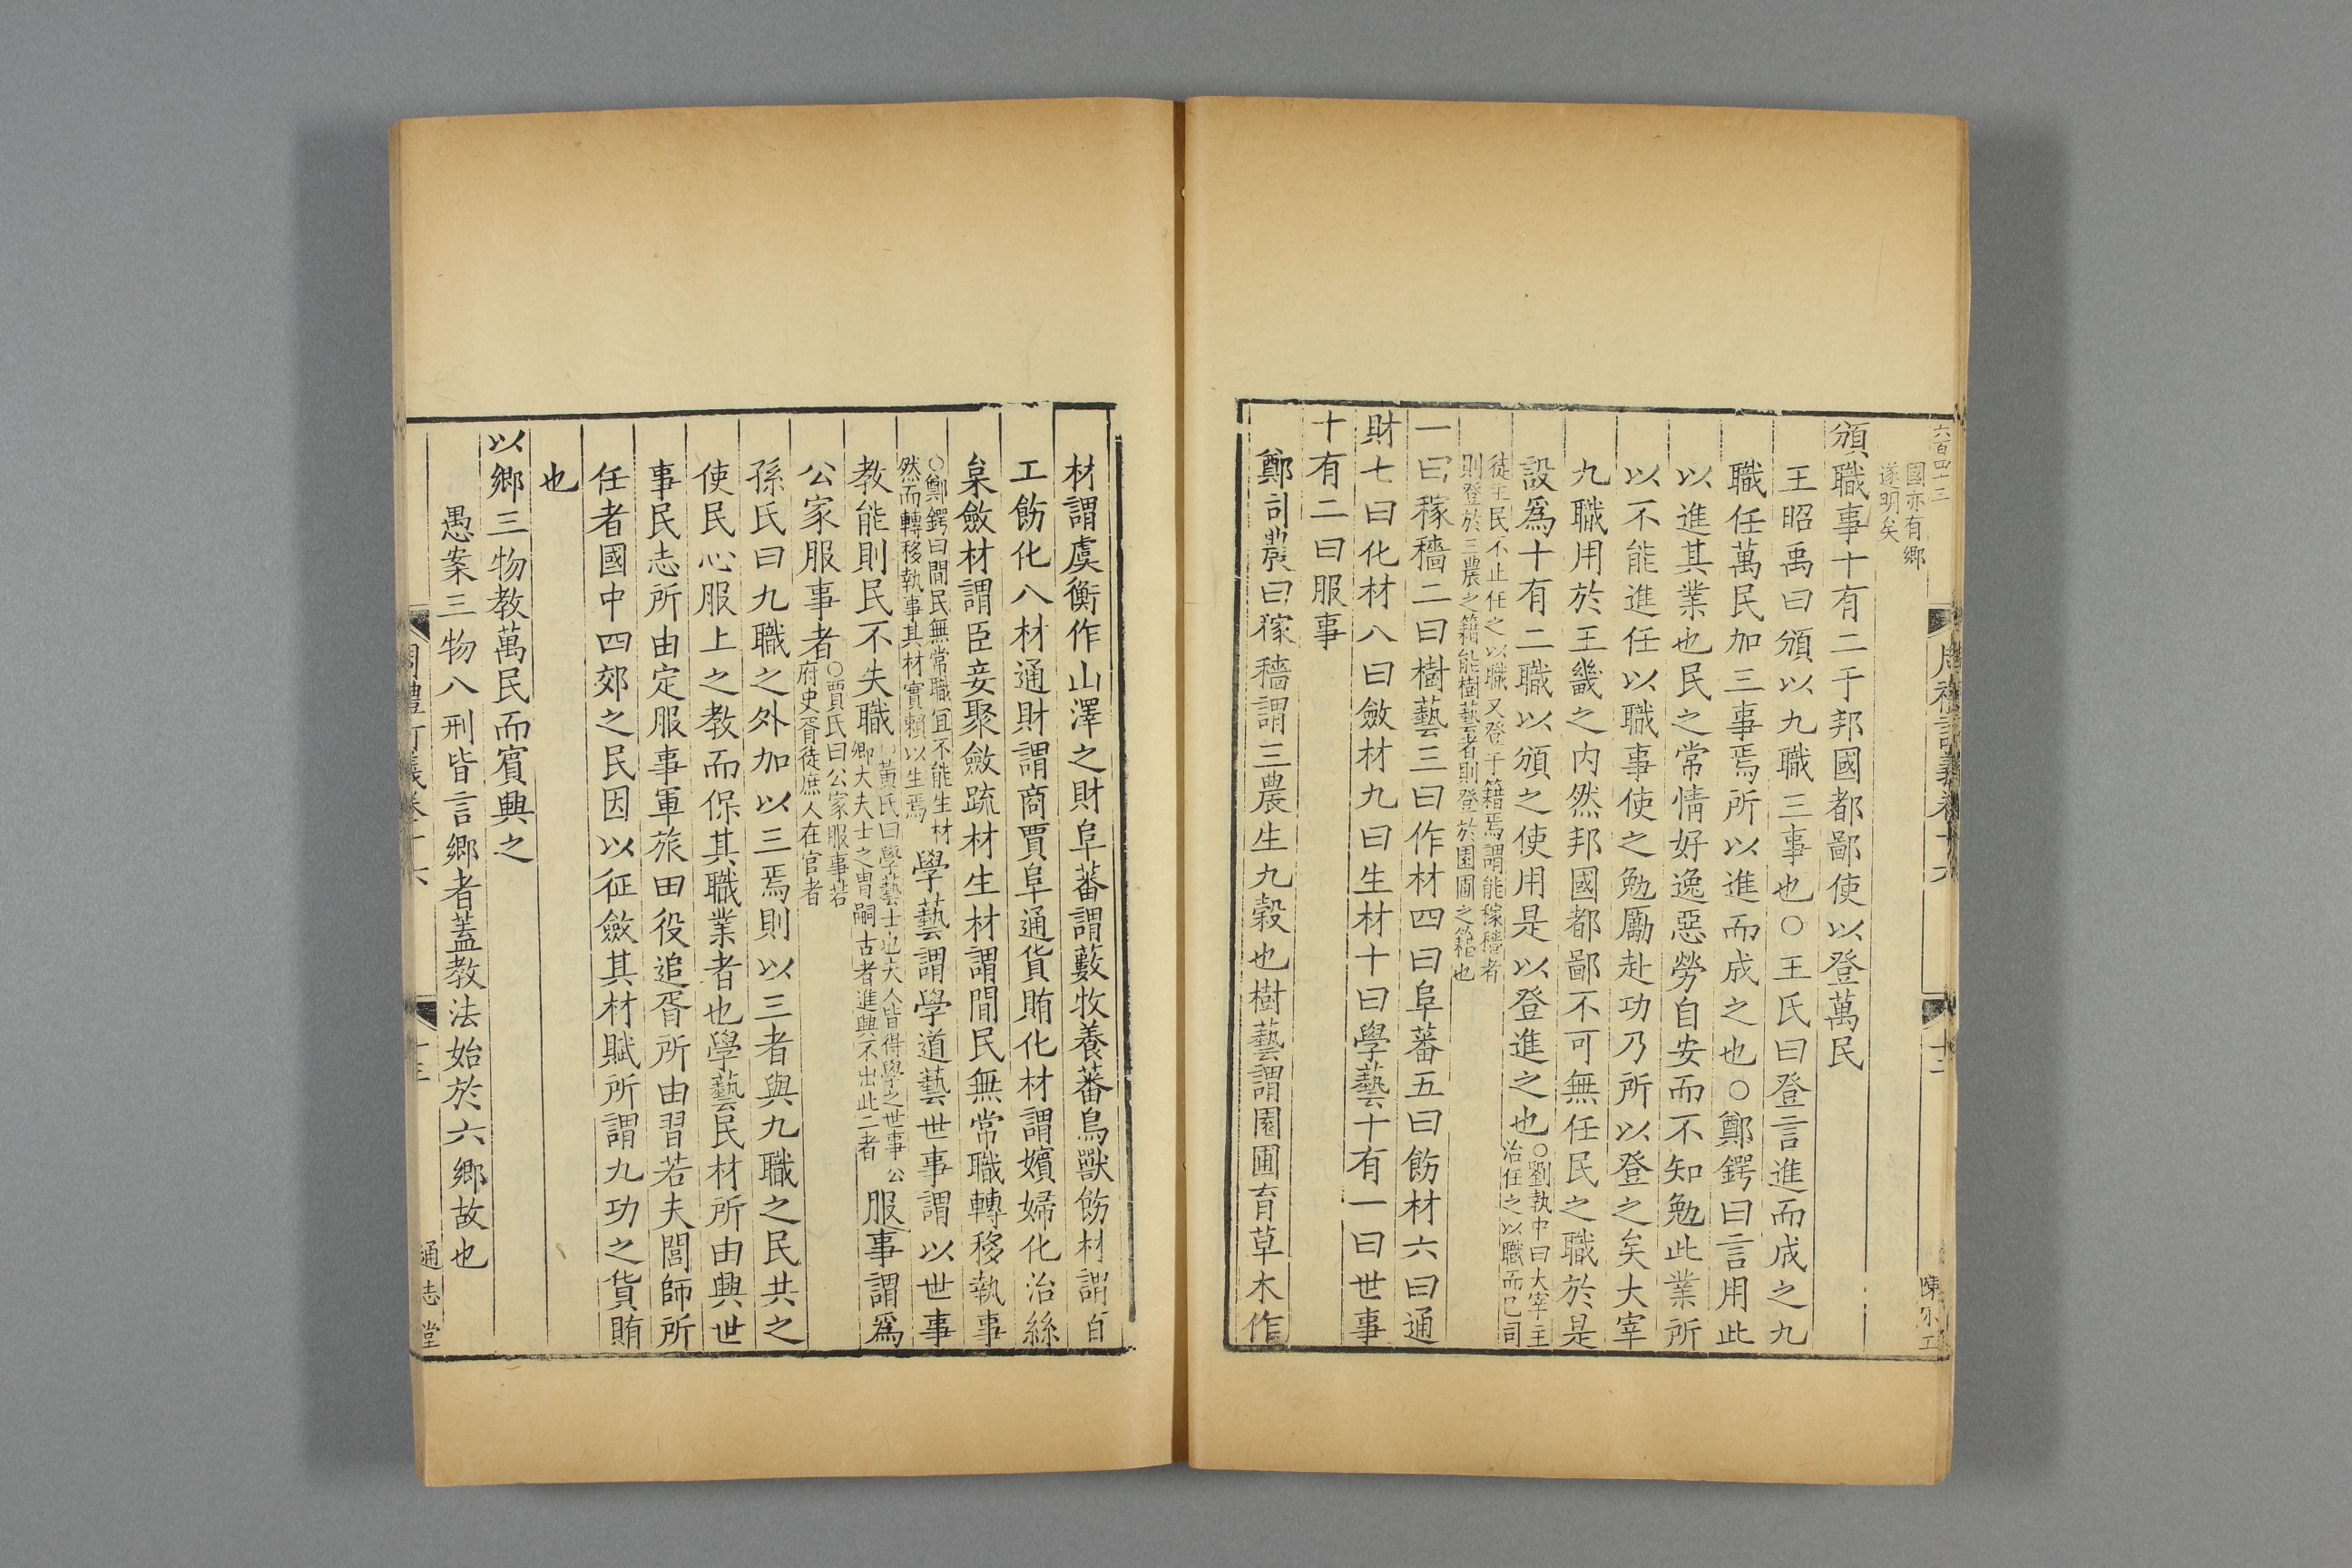 六百四十三
周禮訂義卷十六
十二
國亦有鄉
遂明矣
頒職事十有二于邦國都鄙使以登萬民
王昭禹曰頒以九職三事也○王氏曰登言進而成之九
職任萬民加三事焉所以進而成之也○鄭鍔曰言用此
以進其業也民之常情好逸惡勞自安而不知勉此業所
以不能進任以職事使之勉勵赴功乃所以登之矣大宰
九職用於王畿之内然邦國都鄙不可無任民之職於是
設爲十有二職以頒之使用是以登進之也
○劉執中曰大宰主
治任之以職而已司
徒主民不止任之以職又登于籍焉謂能稼穡者
則登於三農之籍能樹藝者則登於園圃之籍也
一曰稼穡二曰樹藝三曰作材四曰阜蕃五曰飭材六曰通
財七曰化材八曰斂材九曰生材十曰學藝十有一曰世事
十有二曰服事
鄭司農曰稼穡謂三農生九穀也樹藝謂園圃育草木作
材謂虞衡作山澤之財阜蕃謂藪牧養蕃鳥獸飭材謂百
工飭化八材通財謂商賈阜通貨賄化材謂嬪婦化治絲
枲斂材謂臣妾聚斂疏材生材謂閒民無常職轉移執事
○鄭鍔曰閒民無常職宜不能生材
然而轉移執事其材實賴以生焉
學藝謂學道藝世事謂以世事
教能則民不失職
○黃氏曰學藝士也大人皆得學之世事公
卿大夫士之胄嗣古者進興不出此二者
服事謂爲
公家服事者
○賈氏曰公家服事若
府史胥徒庶人在官者
孫氏曰九職之外加以三焉則以三者與九職之民共之
使民心服上之教而保其職業者也學藝民材所由興世
事民志所由定服事軍旅田役追胥所由習若夫閭師所
任者國中四郊之民因以征斂其材賦所謂九功之貨賄
也
以鄉三物教萬民而賓興之
愚案三物八刑皆言鄉者蓋教法始於六鄉故也
周禮訂義卷十六
十三
通志堂